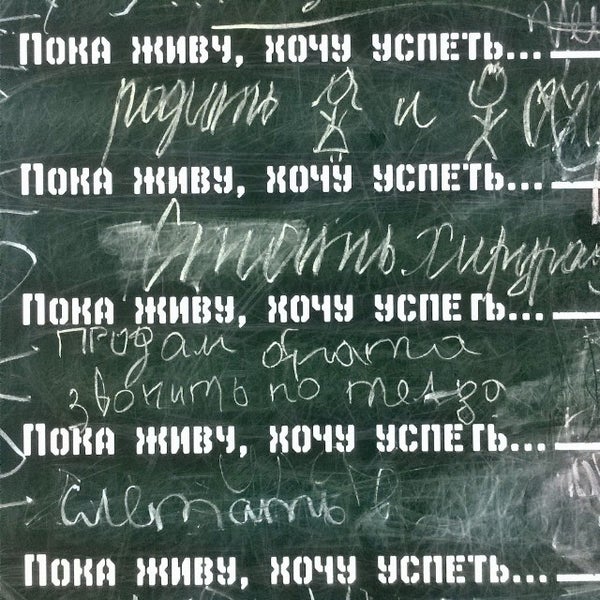 Пока живу, хочу успеть...
родить и
Пока живу, хочу успеть...
Пока живу, хочу успеть...
продам брата
звонить по тел.
Пока живу, хочу успеть...
слетать в
Пока живу, хочу успеть...